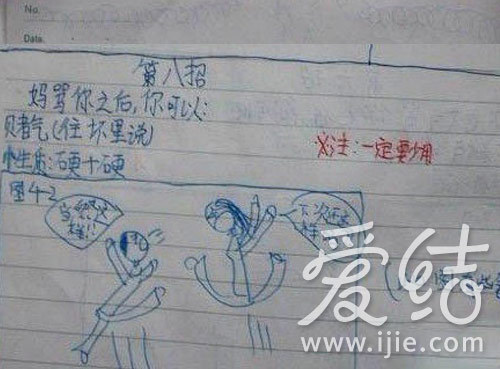 No.
Date.
第八招
妈骂你之后,你可以:
赌气(往坏里说)
性质:硬十硬
※注:一定要少用
图4-2
当然这样!!
下次还这样
爱结
www.ijie.com